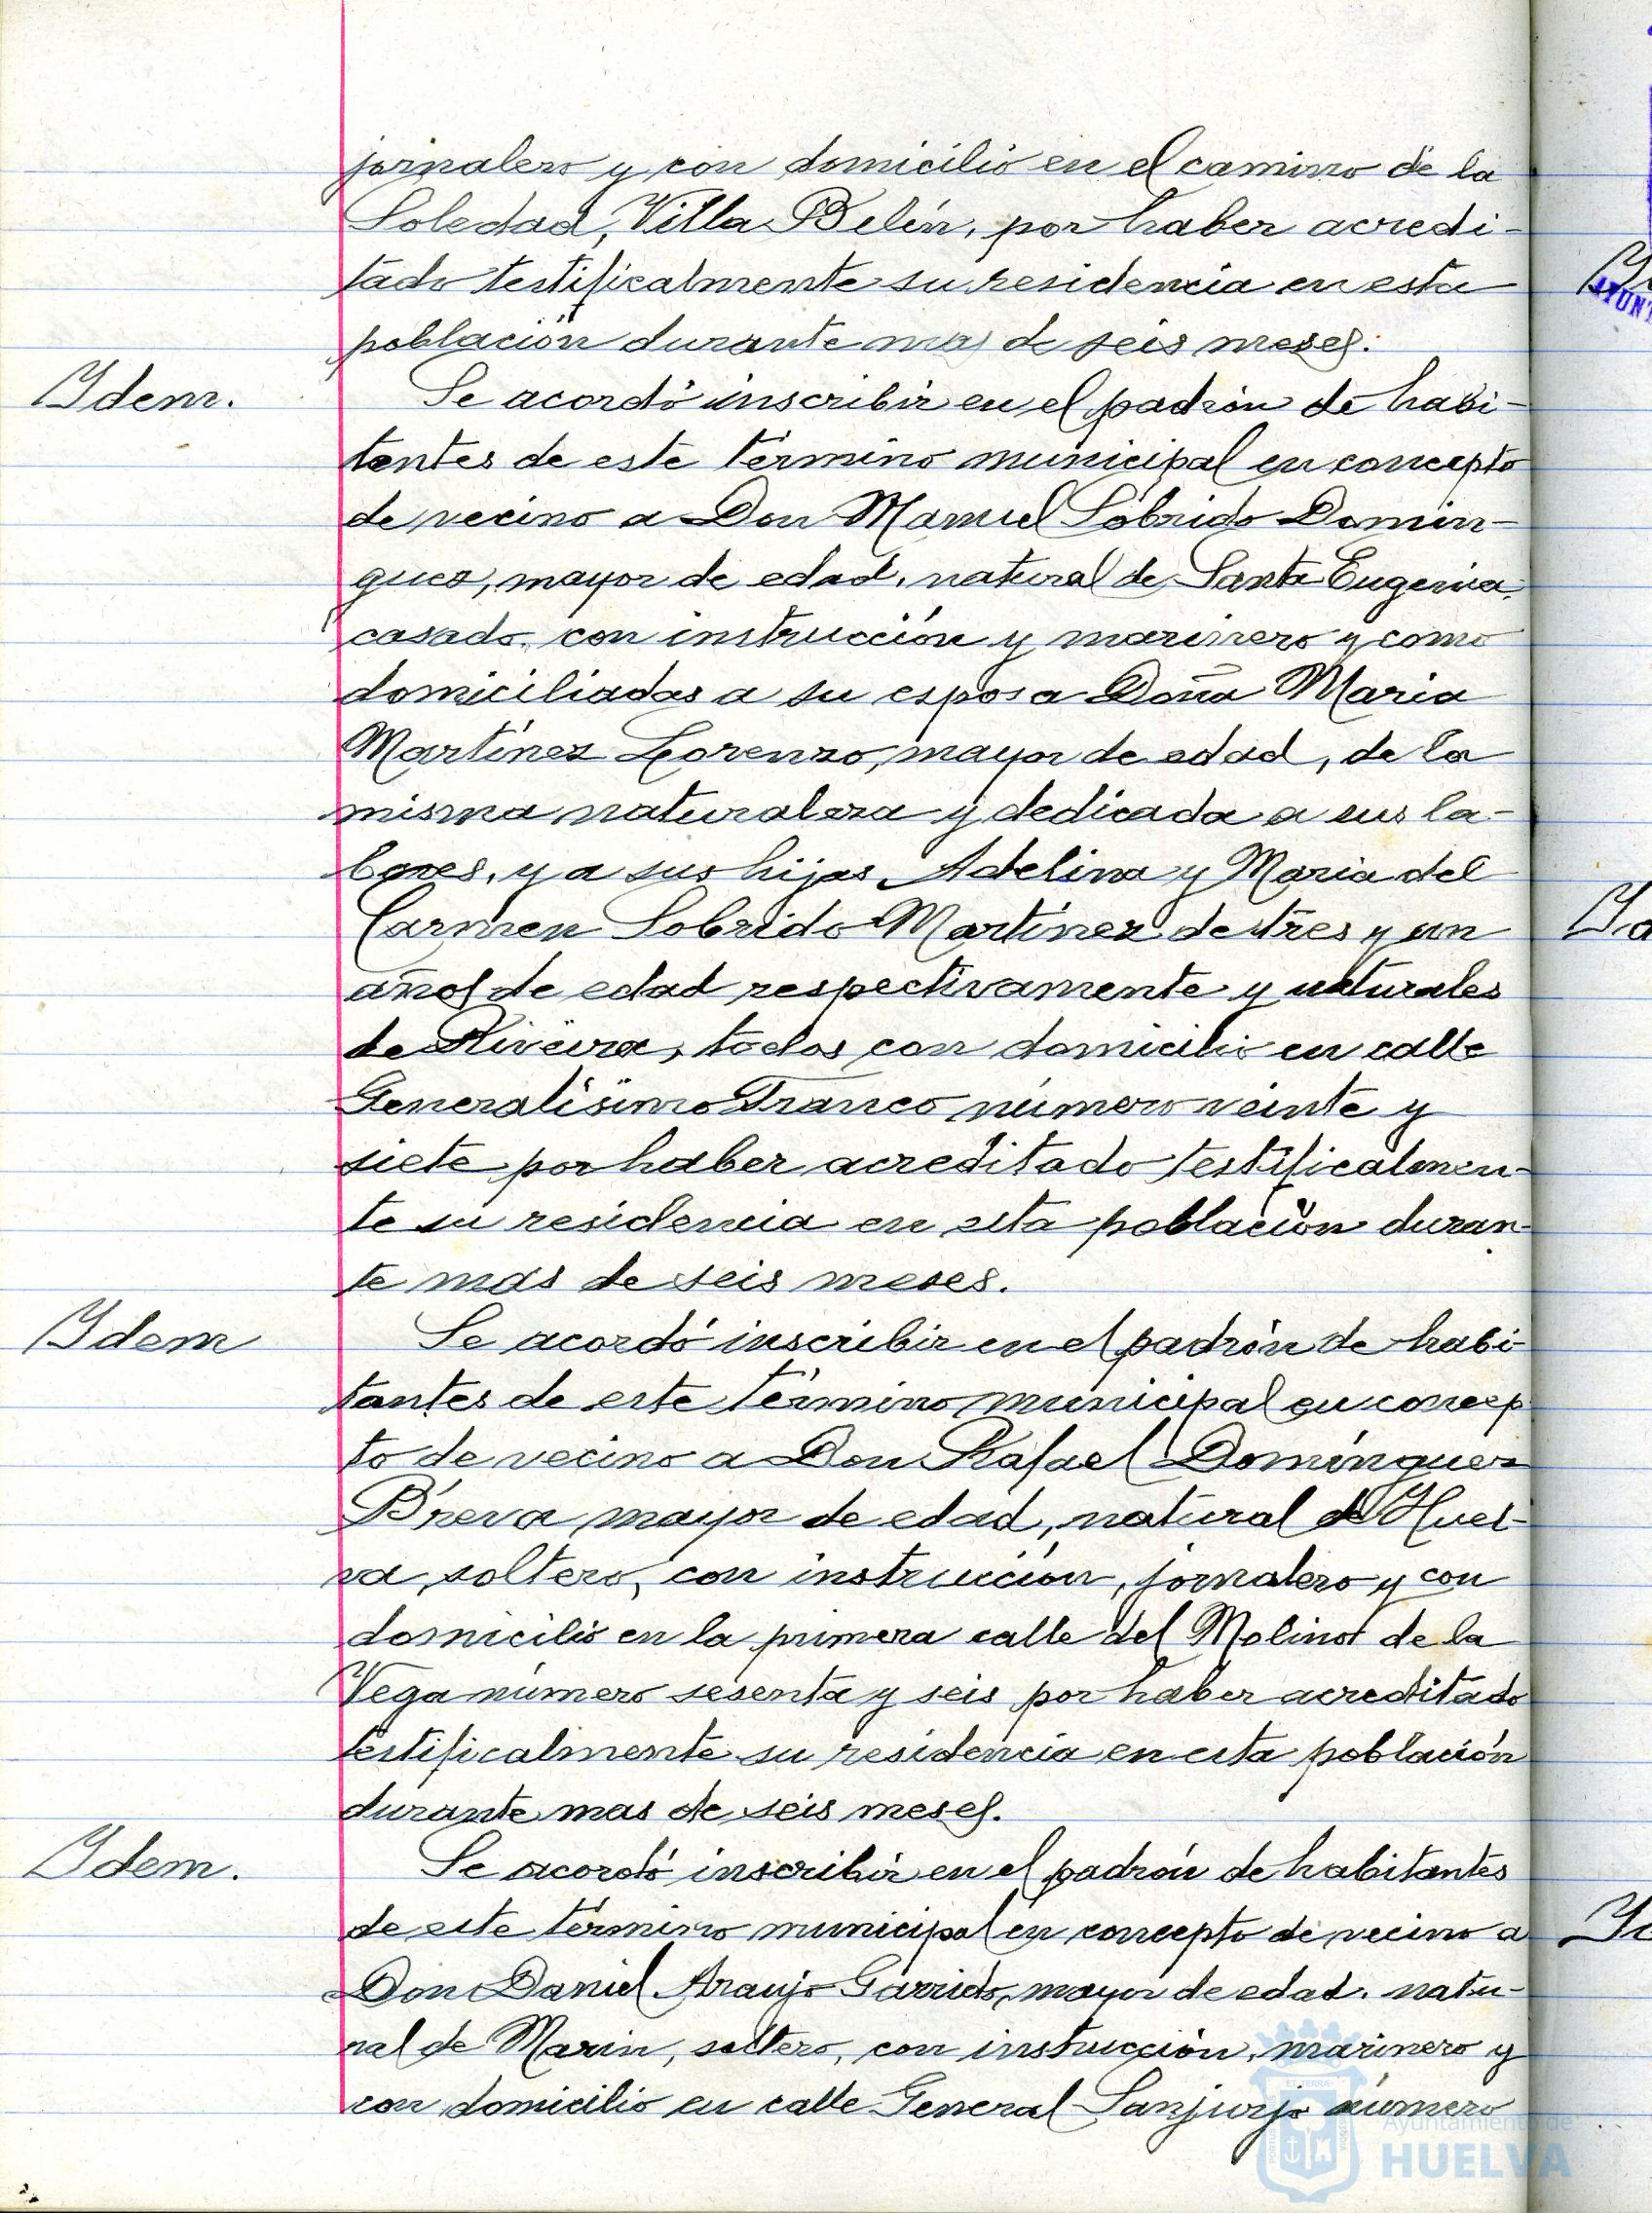 jornalero y con domicilio en el camino de la
Soledad, Villa Belén, por haber acredi-
tado testificalmente su residencia en esta
población durante mas de seis meses.
Idem.
Se acordó inscribir en el padrón de habi-
tantes de este término municipal en concepto
de vecino a Don Manuel Sobrido Domin-
guez, mayor de edad, natural de Santa Eugenia,
casado, con instrucción y marinero y como
domiciliadas a su esposa Doña Maria
Martínez Lorenzo, mayor de edad, de la
misma naturaleza y dedicada a sus la-
bores, y a sus hijas Adelina y Maria del
Carmen Sobrido Martínez de tres y un
años de edad respectivamente y naturales
de Riveira, todos con domicilio en calle
Generalísimo Franco número veinte y
siete por haber acreditado testificalmen-
te su residencia en esta población duran-
te mas de seis meses.
Idem
Se acordó inscribir en el padrón de habi-
tantes de este término municipal en concep
to de vecino a Don Rafael Domínguez
Breva mayor de edad, natural de Huel-
va, soltero, con instrucción, jornalero y con
domicilio en la primera calle del Molino de la
Vega número sesenta y seis por haber acreditado
testificalmente su residencia en esta población
durante mas de seis meses.
Idem.
Se acordó inscribir en el padrón de habitantes
de este término municipal en concepto de vecino a
Don Daniel Araujo Garrido, mayor de edad, natu-
ral de Marin, soltero, con instrucción, marinero y
con domicilio en calle General Sanjurjo número
Ayuntamiento de
HUELVA